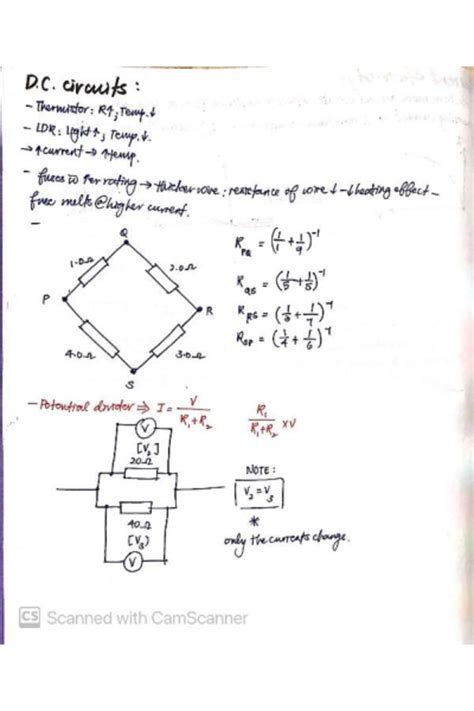 D.C. circuits :
- Thermistor : R↑, Temp.↓
- LDR : Light↑, Temp.↓.
→ ↑current → ↑temp.
- fuses rating → thicker wire : resistance of wire ↓ → ↓heating effect -
fuse melts @ higher current.
-
Q
1.0Ω
2.0Ω
P
R
4.0Ω
3.0Ω
S
R_PQ = (1/1 + 1/9)^-1
R_QS = (1/5 + 1/5)^-1
R_RS = (1/3 + 1/7)^-1
R_SP = (1/4 + 1/6)^-1
- Potential divider ⇒ I = V/(R₁+R₂)
R₁/(R₁+R₂) ×V
V
[V₂]
20Ω
40Ω
(V₃)
V
NOTE :
V₂ = V₃
*
only the currents change.
CS Scanned with CamScanner